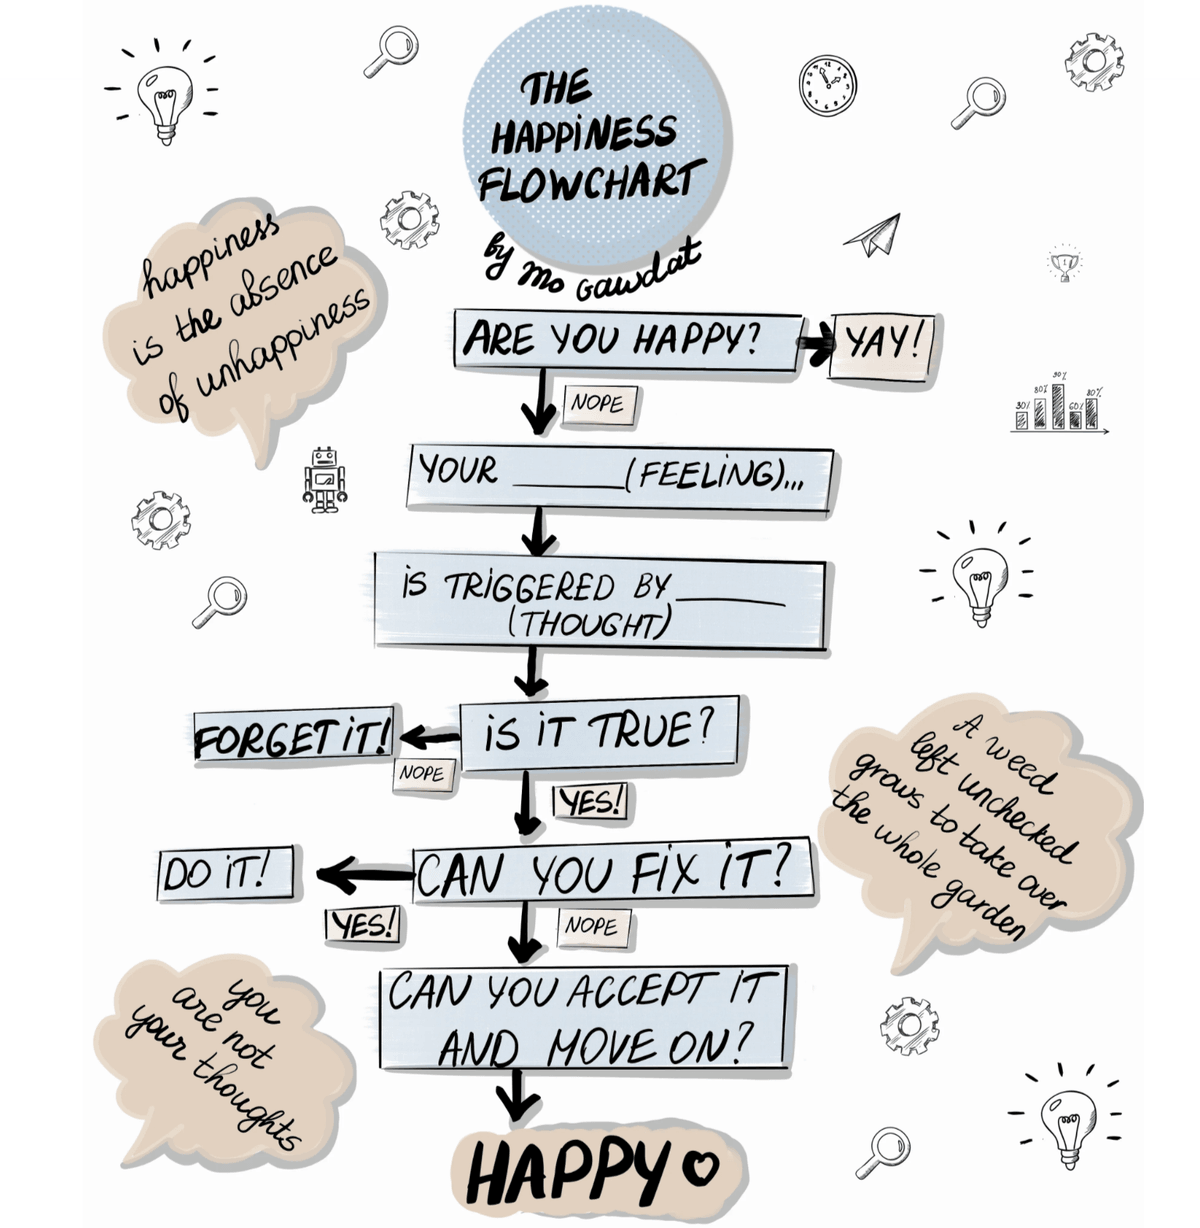 THE
HAPPINESS
FLOWCHART
by Mo Gawdat
happiness
is the absence
of unhappiness
ARE YOU HAPPY?
YAY!
NOPE
30% 80% 90% 60% 80%
YOUR ______(FEELING)...
IS TRIGGERED BY______
(THOUGHT)
IS IT TRUE?
FORGET IT!
NOPE
YES!
A weed
left unchecked
grows to take over
the whole garden
CAN YOU FIX IT?
DO IT!
YES!
NOPE
CAN YOU ACCEPT IT
AND MOVE ON?
you
are not
your thoughts
HAPPY